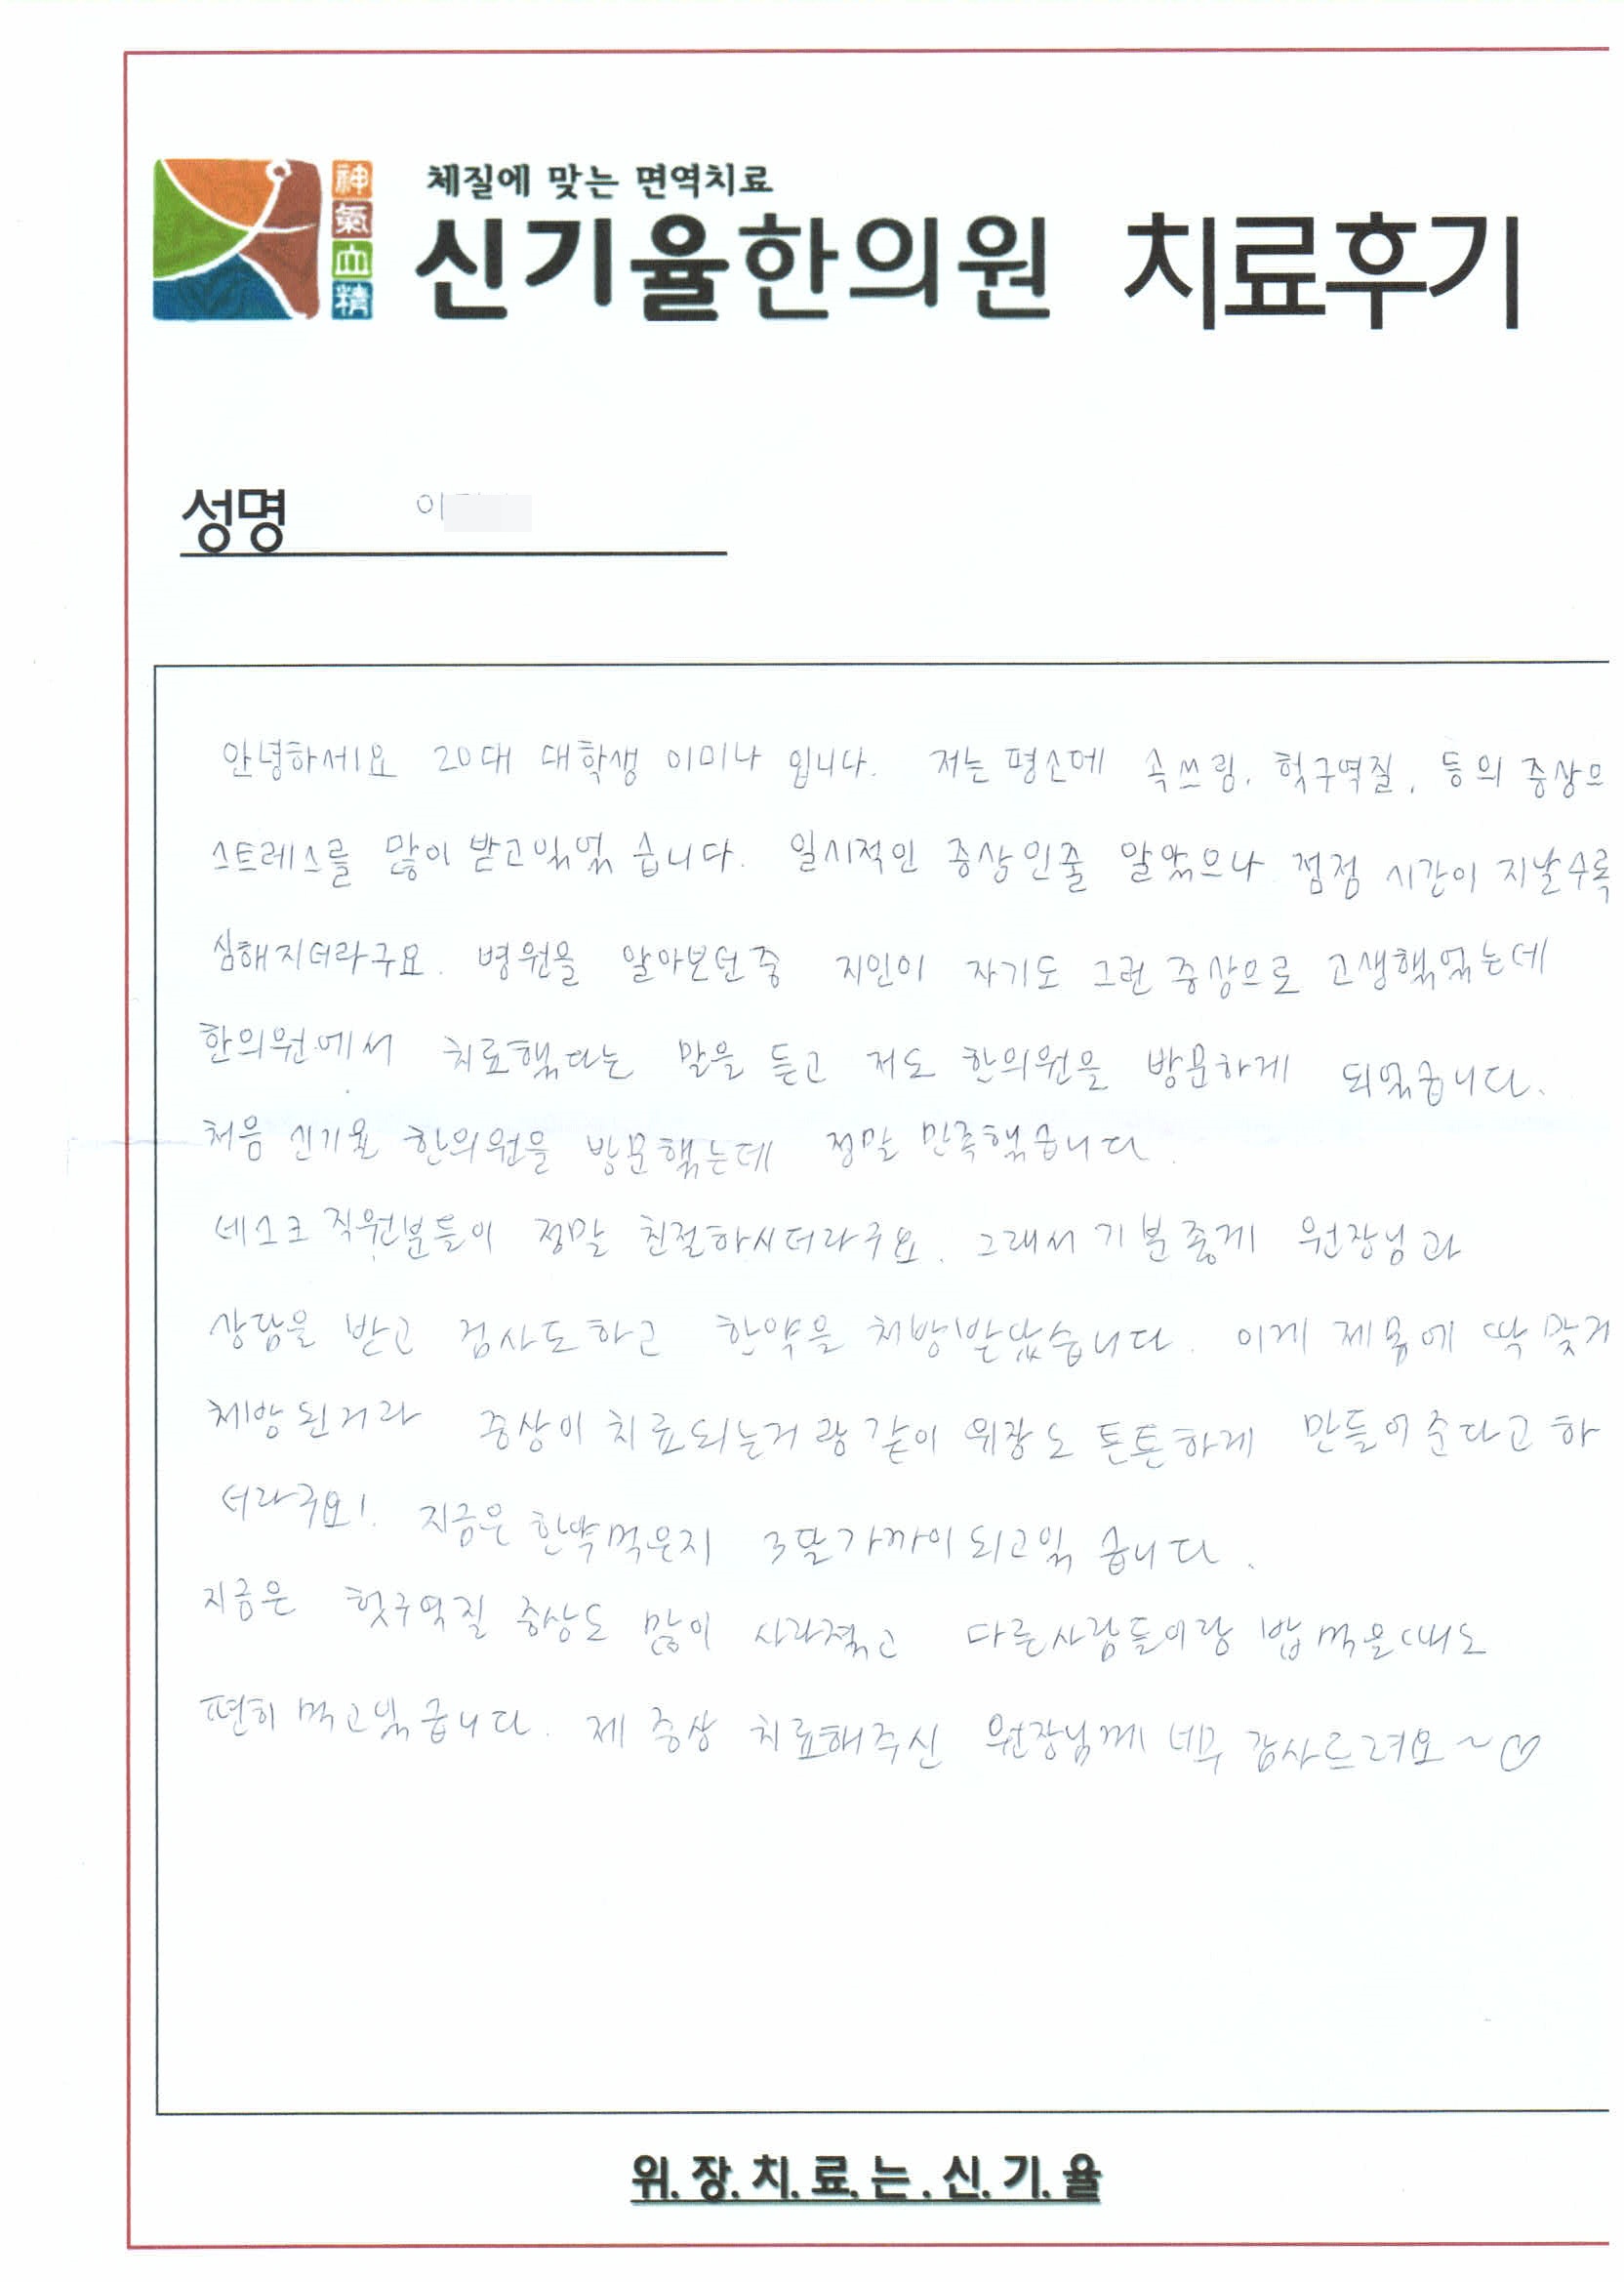 체질에 맞는 면역치료
신기율한의원 치료후기
神氣血精
성명 이
안녕하세요 20대 대학생 이미나 입니다. 저는 평소에 속쓰림, 헛구역질, 등의 증상으
스트레스를 많이 받고있었습니다. 일시적인 증상인줄 알았으나 점점 시간이 지날수록
심해지더라구요. 병원을 알아보던중 지인이 자기도 그런 증상으로 고생했었는데
한의원에서 치료했다는 말을 듣고 저도 한의원을 방문하게 되었습니다.
처음 신기율 한의원을 방문했는데 정말 만족했습니다.
데스크 직원분들이 정말 친절하시더라구요. 그래서 기분좋게 원장님과
상담을 받고 검사도하고 한약을 처방받았습니다. 이게 제몸에 딱 맞게
처방된거라 증상이 치료되는거랑 같이 위장도 튼튼하게 만들어준다고 하
더라구요! 지금은 한약먹은지 3달가까이 되고있습니다.
지금은 헛구역질 증상도 많이 사라졌고 다른사람들이랑 밥먹을때도
편히 먹고있습니다. 제 증상 치료해주신 원장님께 너무 감사드려요~♡
위.장.치.료.는.신.기.율